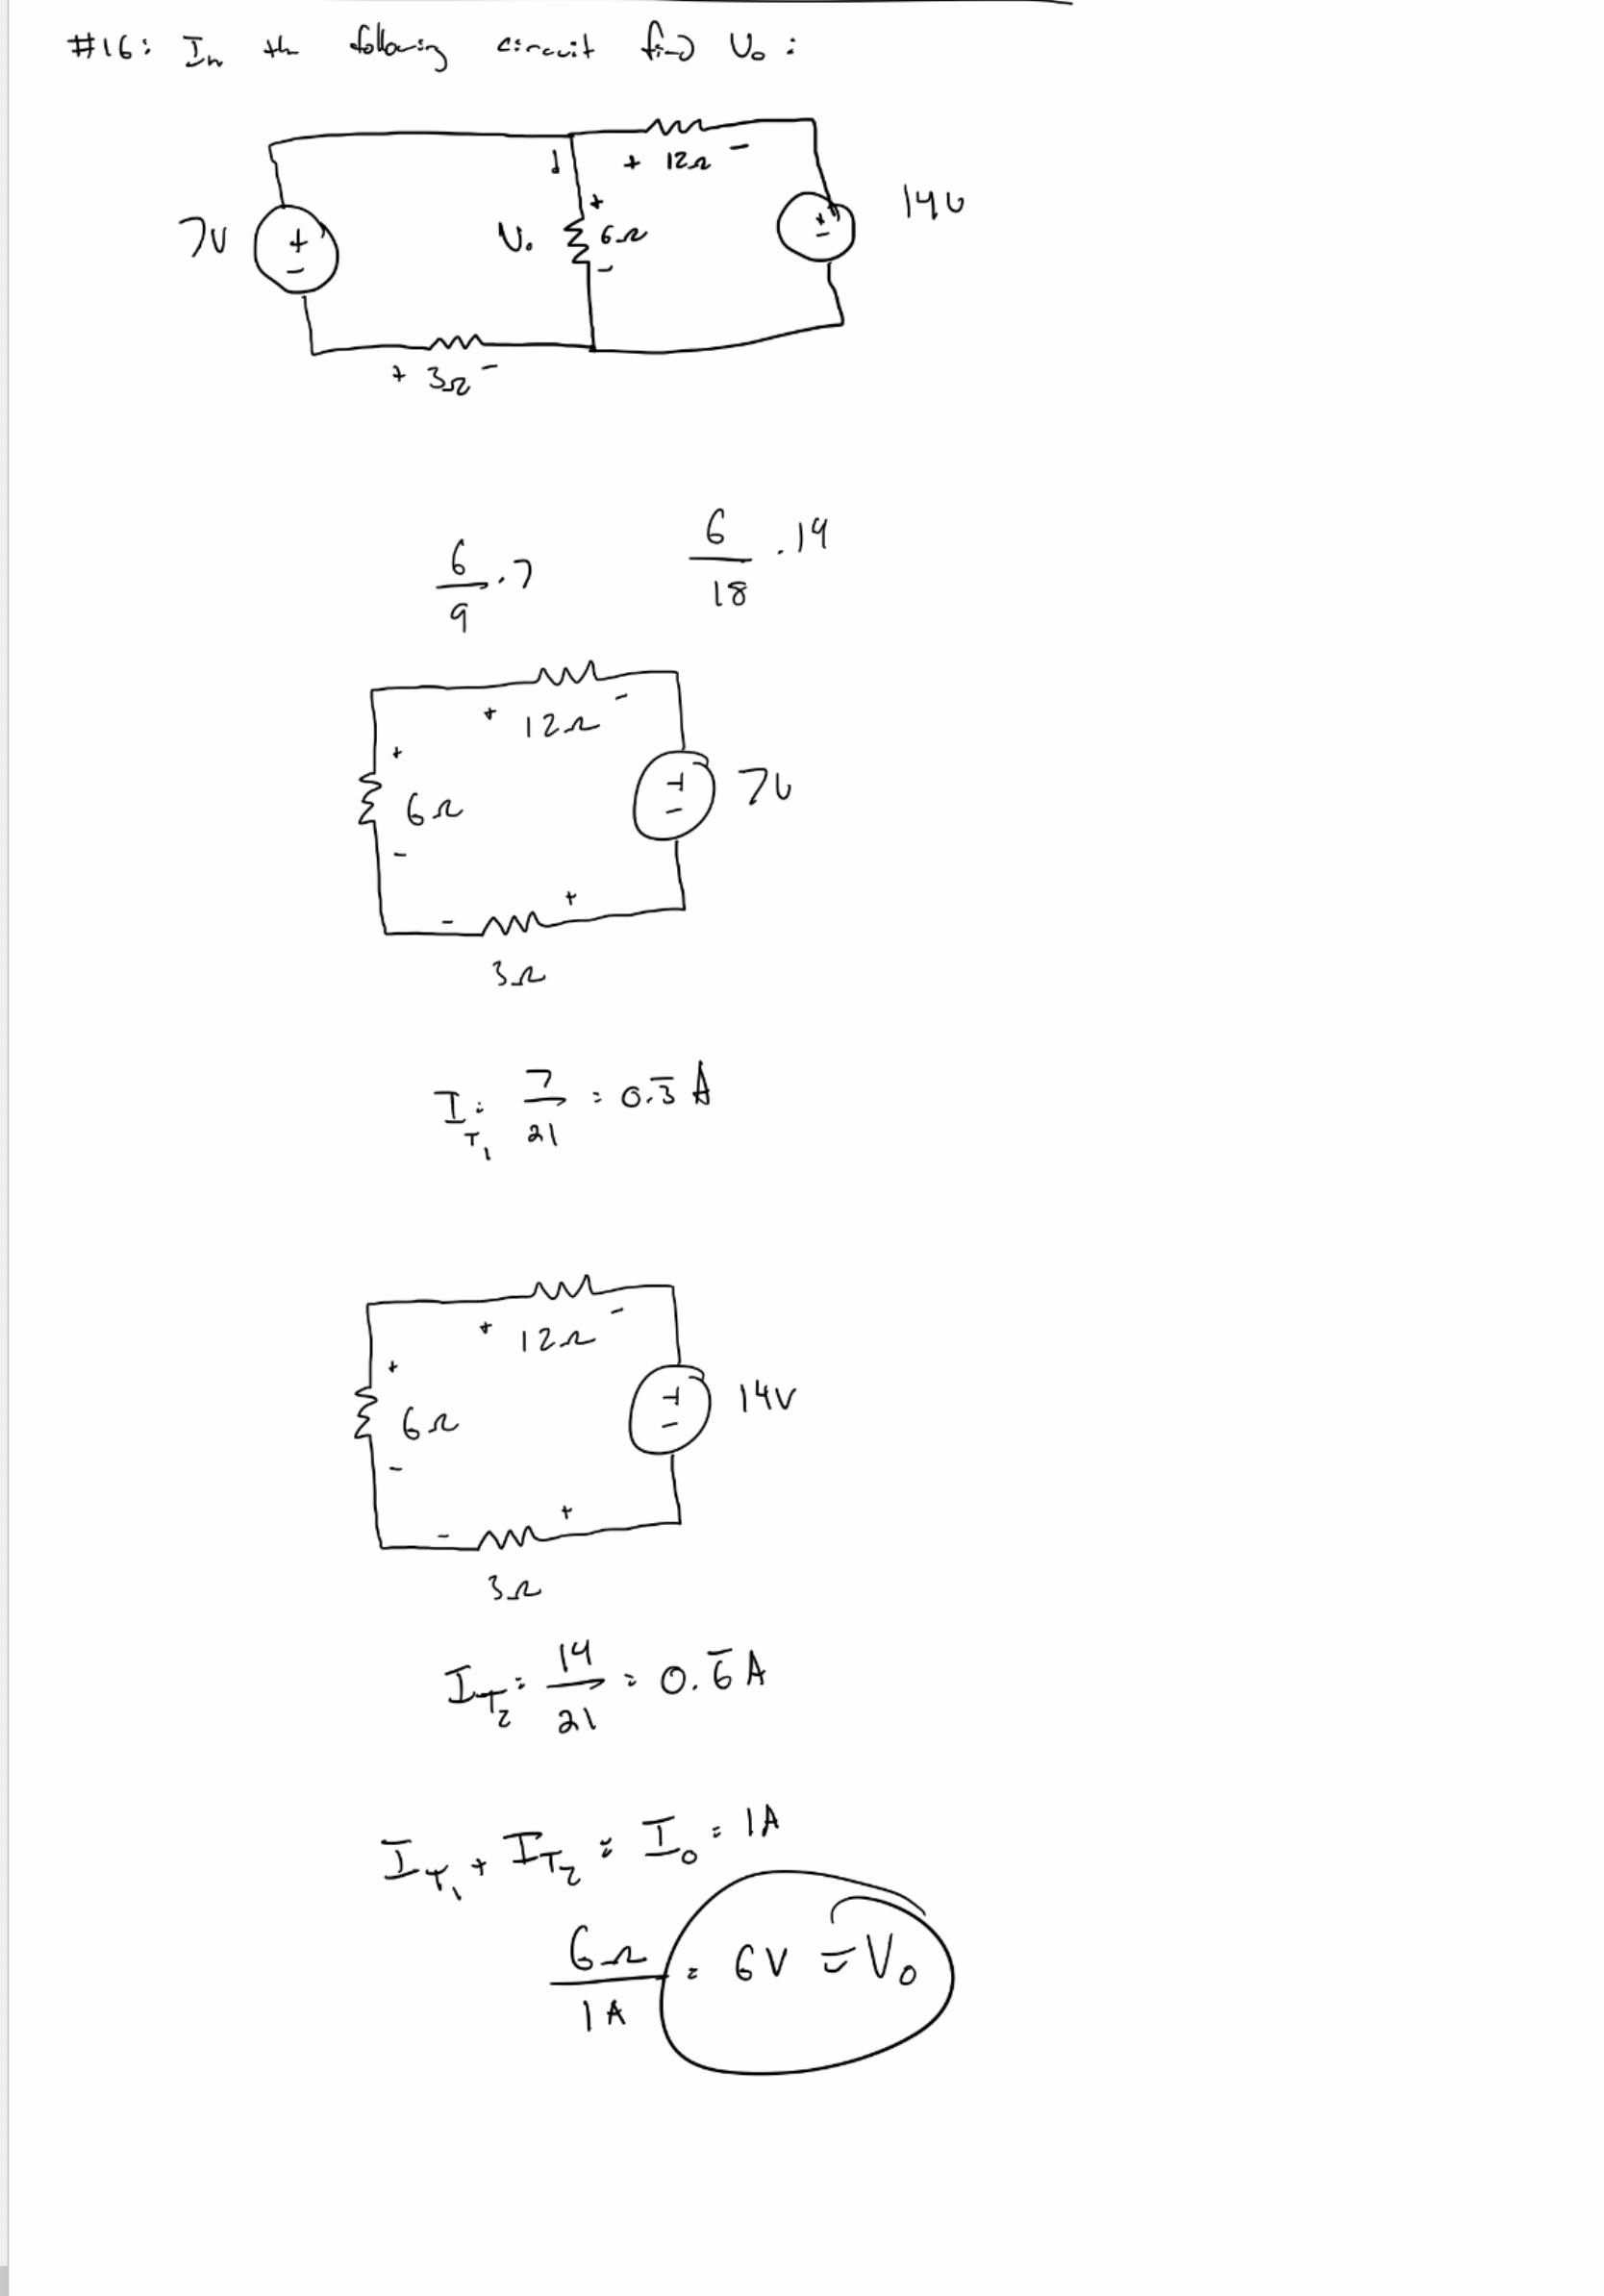 #16: In th following circuit find Vo:
+ 12Ω -
7V + - Vo + 6Ω - + - 14V
+ 3Ω -
6/9 · 7 6/18 · 14
+ 12Ω -
+ 6Ω - + - 7V
- +
3Ω
I_T1 = 7/21 = 0.3̅ A
+ 12Ω -
+ 6Ω - + - 14V
- +
3Ω
I_T2 = 14/21 = 0.6̅ A
I_T1 + I_T2 = I_0 = 1A
6Ω/1A = 6V = Vo